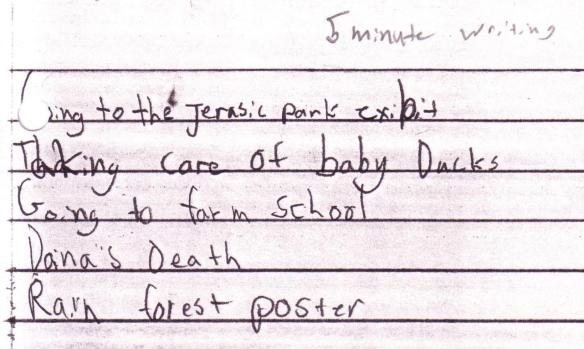 5 minute writing
Going to the Jerasic Park exibit
Taking care of baby Ducks
Going to farm school
Dana's Death
Rain forest poster